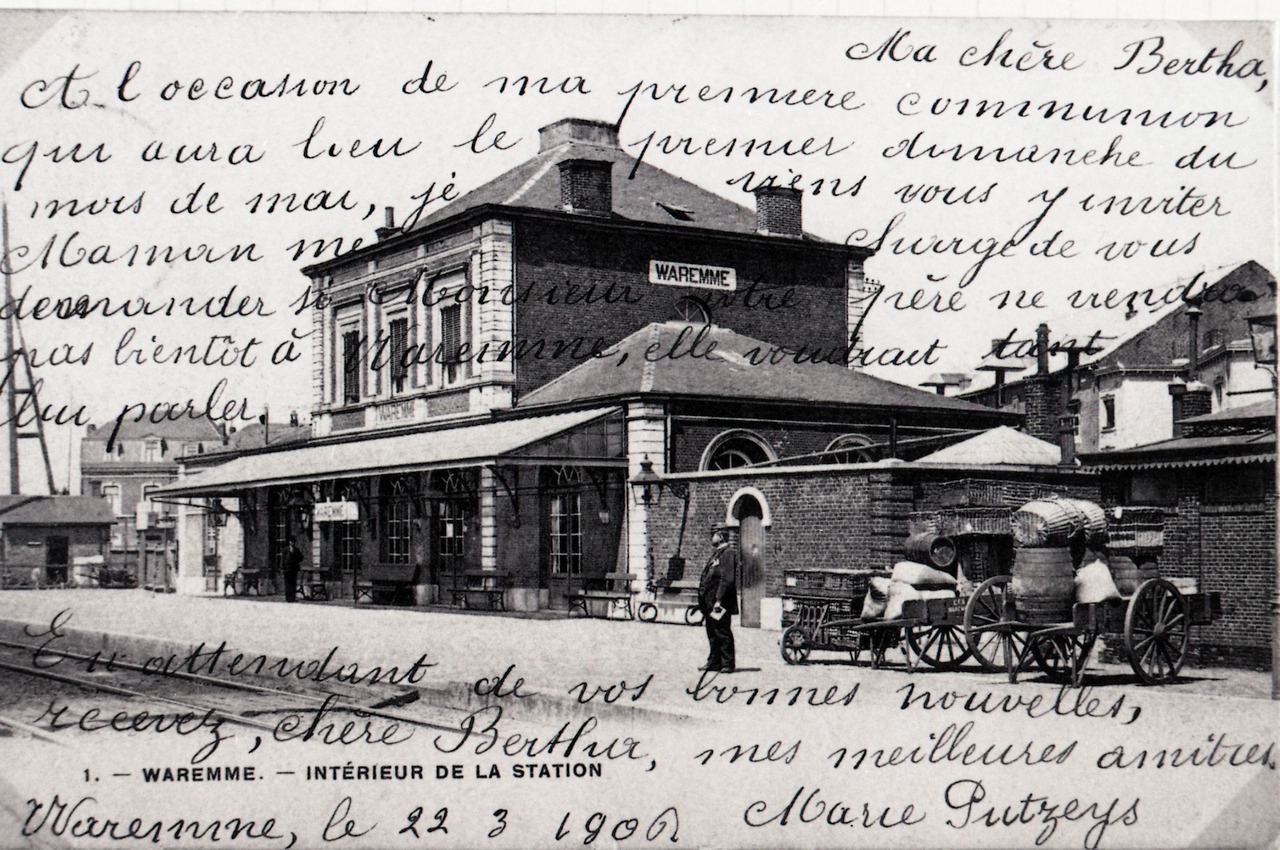 Ma chère Bertha,
A l'occasion de ma première communion
qui aura lieu le premier dimanche du
mois de mai, je viens vous y inviter
Maman me charge de vous
demander si Monsieur votre père ne viendra
pas bientôt à Waremme, elle voudrait tant
lui parler.
WAREMME
WAREMME
WAREMME
En attendant de vos bonnes nouvelles,
recevez, chère Bertha, mes meilleures amitiés.
1. — WAREMME. — INTÉRIEUR DE LA STATION
Waremme, le 22 3 1906 Marie Putzeys